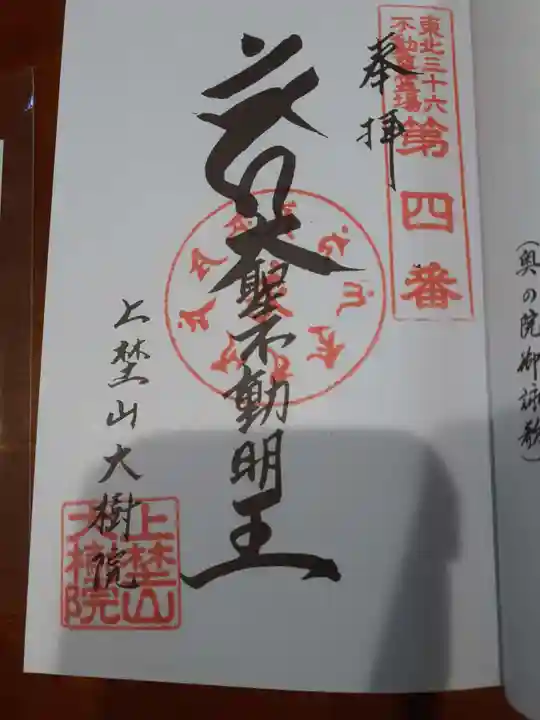 (奥の院御詠歌)
東北三十六
不動尊霊場
第四番
奉拝
大聖不動明王
上埜山大樹院
上埜山
大樹院